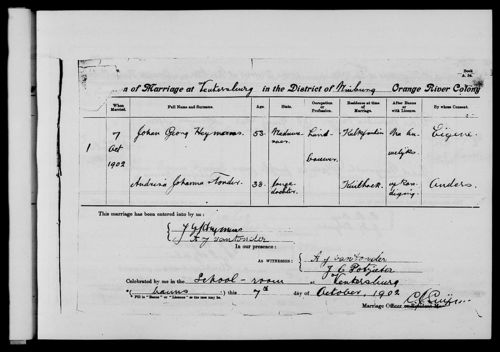 Book
A. 34.
n of Marriage at Ventersburg in the District of Winburg Orange River Colony
When Married.
Full Name and Surname.
Age.
State.
Occupation or Profession.
Residence at time of Marriage.
After Banns or with Licence.
By whose Consent.
1
7
Oct
1902
Johan Georg Heymans
53
Weduwe-
naar
Land-
bouwer
Na hu-
welijks
Eigene
Andrina Johanna Tonder
38
Jonge
dochter
Anders
This marriage has been entered into by us:
J G Heymans
A J van Tonder
In our presence:
As Witnesses:
A J van Tonder
J. C. Potgieter
Celebrated by me in the School-room
Ventersburg
banns
this 7th day of October, 1902
Fill in "Banns" or "Licence" as the case may be.
Marriage Officer